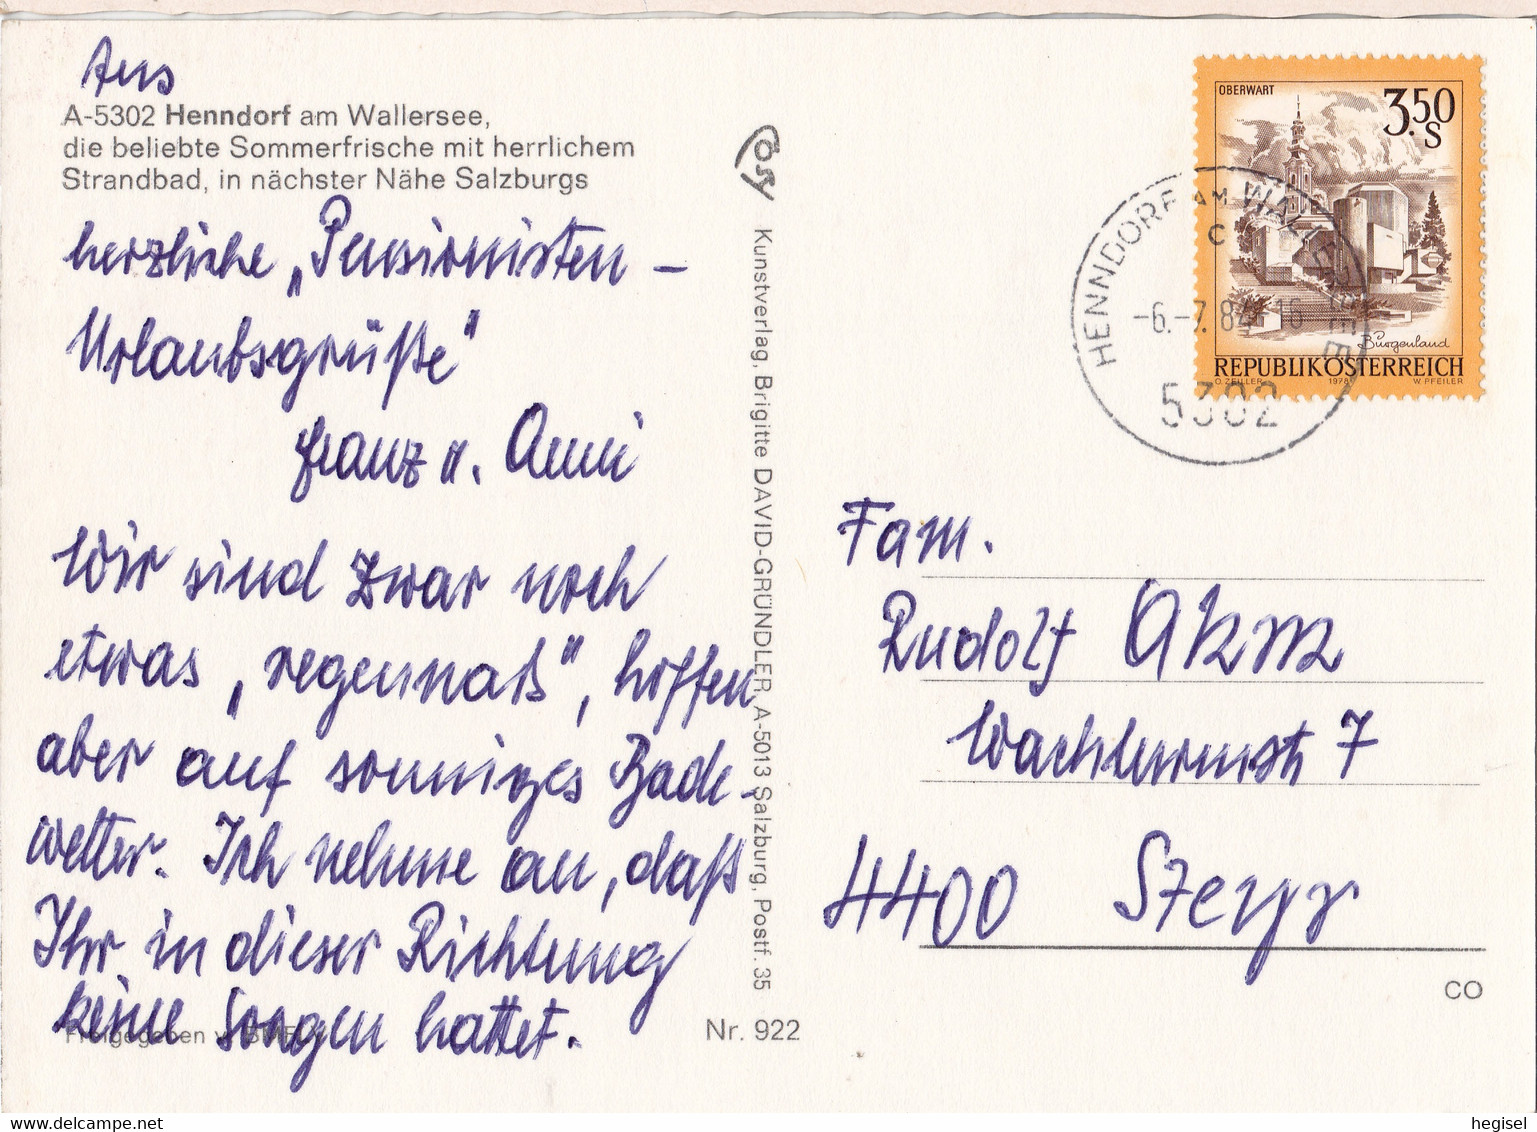 Aus
A-5302 Henndorf am Wallersee,
die beliebte Sommerfrische mit herrlichem
Strandbad, in nächster Nähe Salzburgs
herzliche „Pensionisten-
Urlaubsgrüße"
Franz u. Anni
Wir sind zwar noch
etwas „regennaß", hoffen
aber auf sonniges Bade-
wetter. Ich nehme an, daß
Ihr in dieser Richtung
keine Sorgen hattet.
Freigegeben v.
Nr. 922
Kunstverlag, Brigitte DAVID-GRÜNDLER, A-5013 Salzburg, Postf. 35
OBERWART
3.50
S
Burgenland
REPUBLIK ÖSTERREICH
O. ZEILLER 1978 W. PFEILER
HENNDORF AM WALLERSEE
C
-6.-7.82-16
5302
Fam.
Rudolf
7
4400 Steyr
CO
hegisel